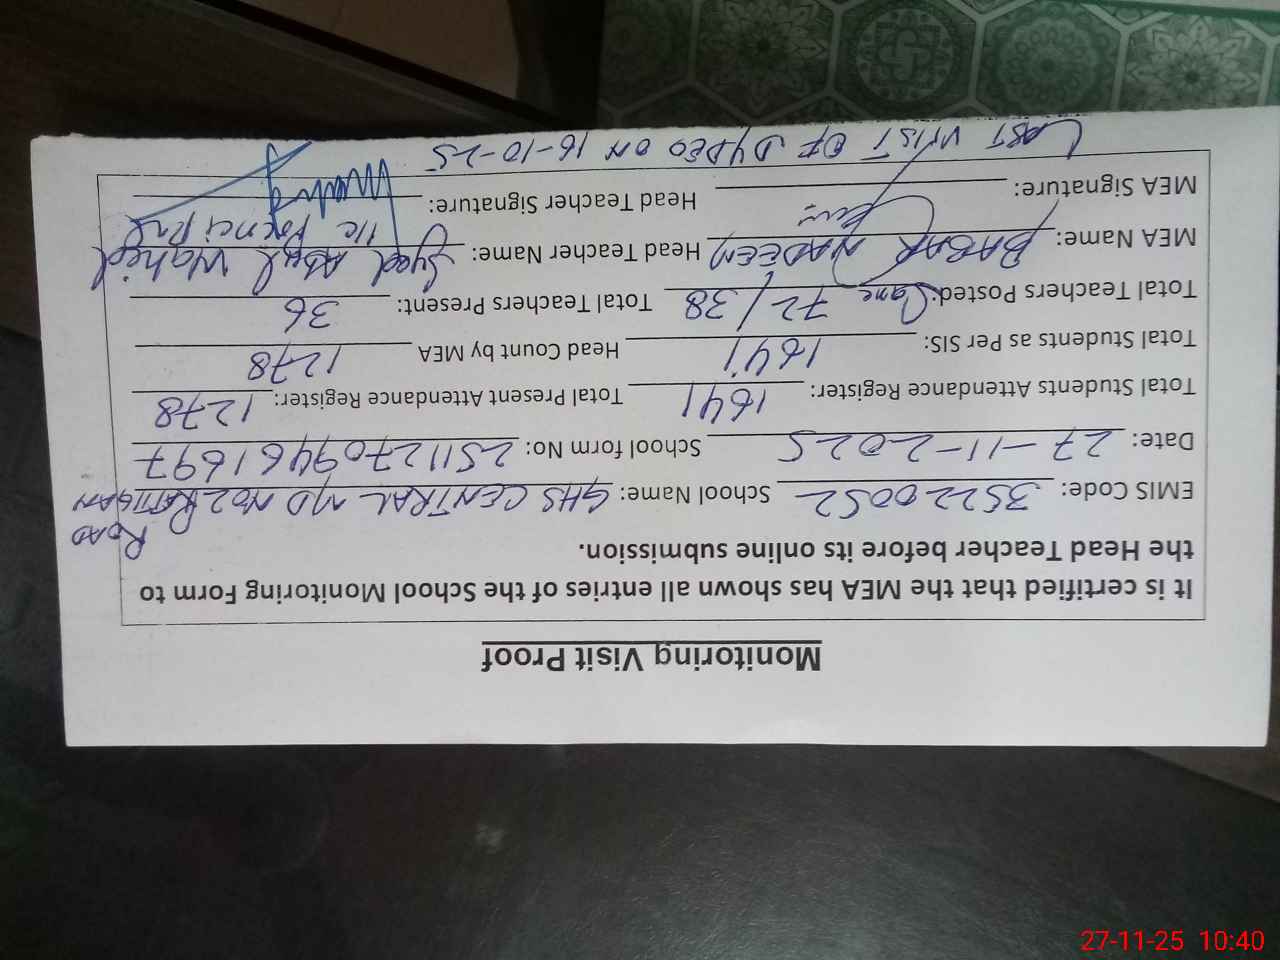 Monitoring Visit Proof
It is certified that the MEA has shown all entries of the School Monitoring Form to
the Head Teacher before its online submission.
EMIS Code: 35220052 School Name: GHS CENTRAL MD NO2 RATTIGAN ROAD
Date: 27-11-2025 School form No: 25112709461697
Total Students Attendance Register: 1641 Total Present Attendance Register: 1278
Total Students as Per SIS: 1641 Head Count by MEA 1278
Total Teachers Posted: 72/38 Total Teachers Present: 36
MEA Name: BABAR NADEEM Head Teacher Name: Syed Abdul Wahid
I/c Principal
MEA Signature: Head Teacher Signature:
LAST VISIT OF DYDEO ON 16-10-25
27-11-25 10:40